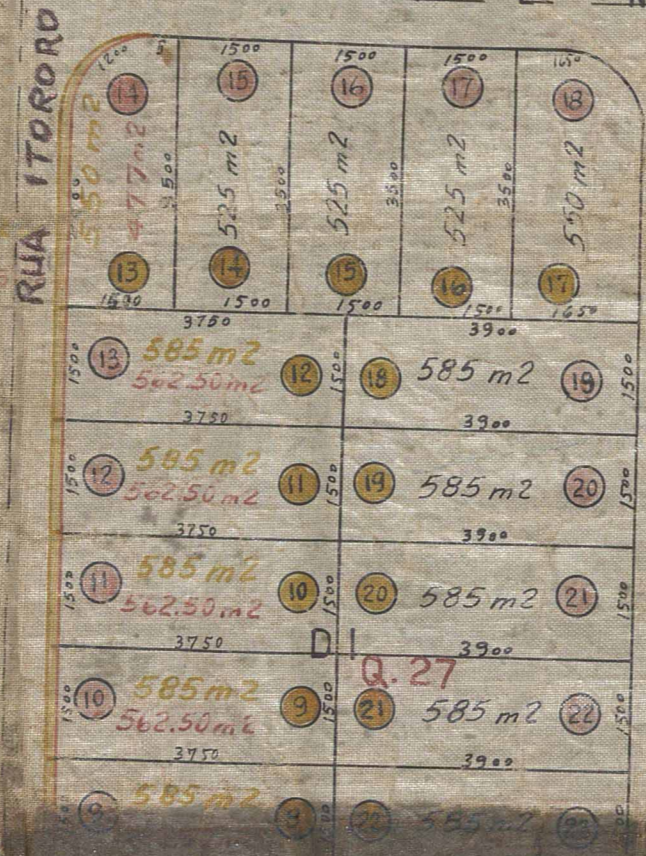 RUA ITORORO
1200
1500
1500
1500
1650
14
15
16
17
18
550 m2
477 m2
3500
525 m2
3500
525 m2
3500
525 m2
3500
550 m2
13
14
15
16
17
1500
1500
1500
1500
1650
3750
3900
1500
13
585 m2
562.50 m2
12
1500
18
585 m2
19
1500
3750
3900
1500
12
585 m2
562.50 m2
11
1500
19
585 m2
20
1500
3750
3900
1500
11
585 m2
562.50 m2
10
1500
20
585 m2
21
1500
3750
D1
3900
Q. 27
1500
10
585 m2
562.50 m2
9
1500
21
585 m2
22
1500
3750
3900
585 m2
22
585 m2
23